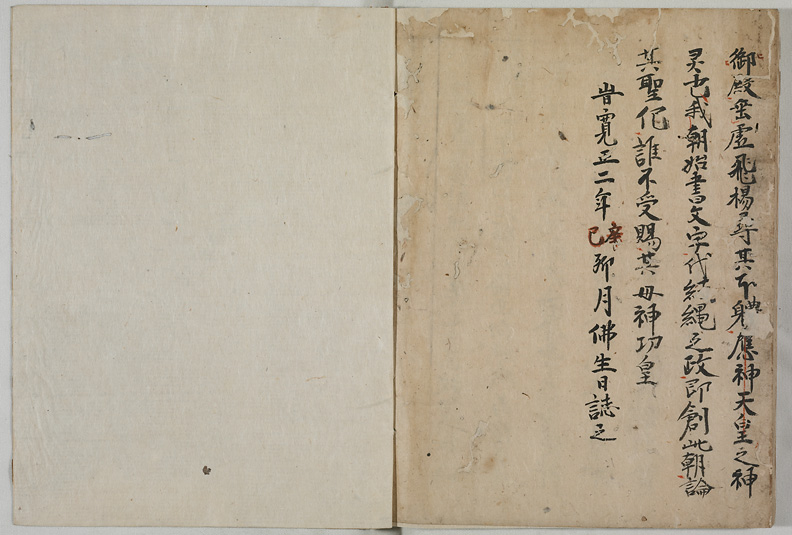 御殿乗虚飛楊尋其本身應神天皇之神
灵也我朝始書文字代結縄之政即創此朝論
其聖化誰不受賜其母神功皇
旹寛正二年辛巳卯月佛生日誌之